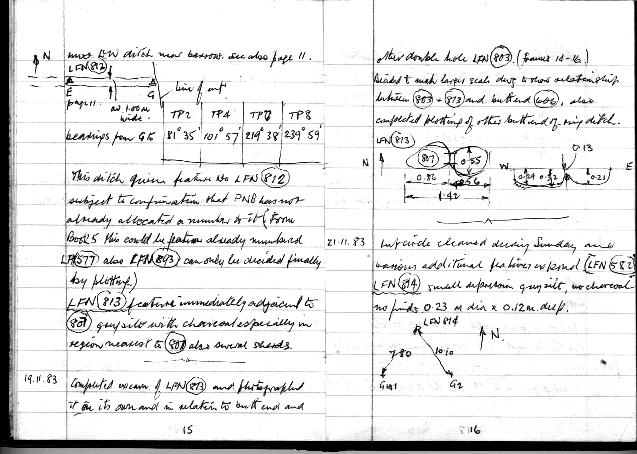 N
most EW ditch near barrows. See also page 11.
LFN (812)
A
E
G
page 11.
av. 1.00m
wide.
line of cut
TP2 TP4 TP7 TP8
bearings from G to 81° 35' 101° 57' 219° 38' 239° 59'
This ditch given feature No LFN (812)
subject to confirmation that PNB has not
already allocated a number to it (From
Book 5 this could be feature already numbered
LF(577) also LFN(893) can only be decided finally
by plotting)
LFN (813) feature immediately adjacent to
(807) grey silt with charcoal especially in
region nearest to (807) also several sherds.
19.11.83 Completed excav. of LFN (813) and photographed
it on its own and in relation to butt end and
15
other double hole LFN (803). (frames 14-16).
Decided to make larger scale dwg to show relationship
between (803) - (813) and butt end (606), also
completed plotting of other butt end of ring ditch.
LFN (813)
N
(807)
0.55
0.56
1.42
W
0.32
0.13
E
0.21
21.11.83 hut circle cleaned during Sunday and
various additional features exposed (LFN 582)
LFN (814) small depression grey silt, no charcoal
no finds 0.23 m dia x 0.12 m deep.
LFN 814
N
7.80
10.10
G2
16